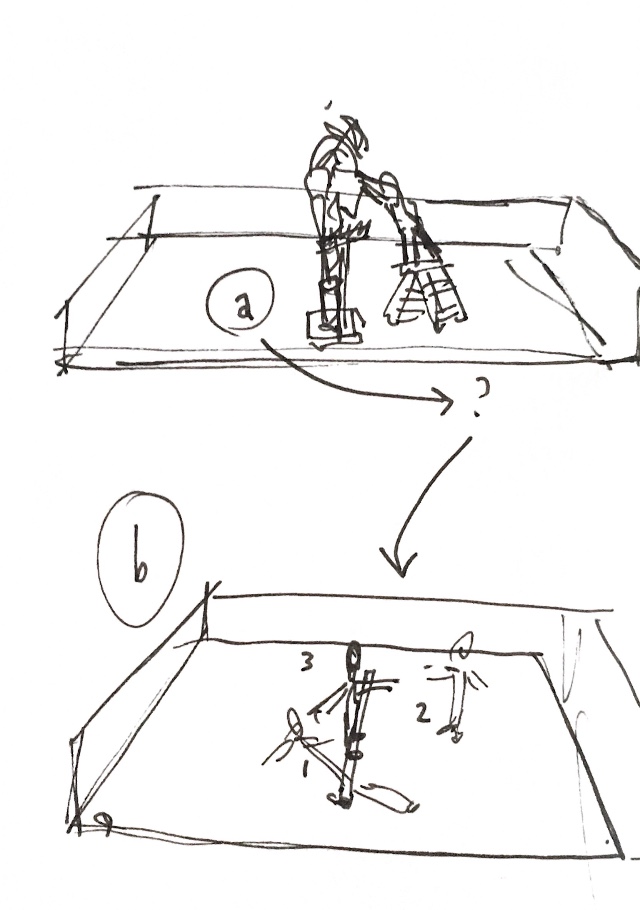 a
?
b
3
2
1